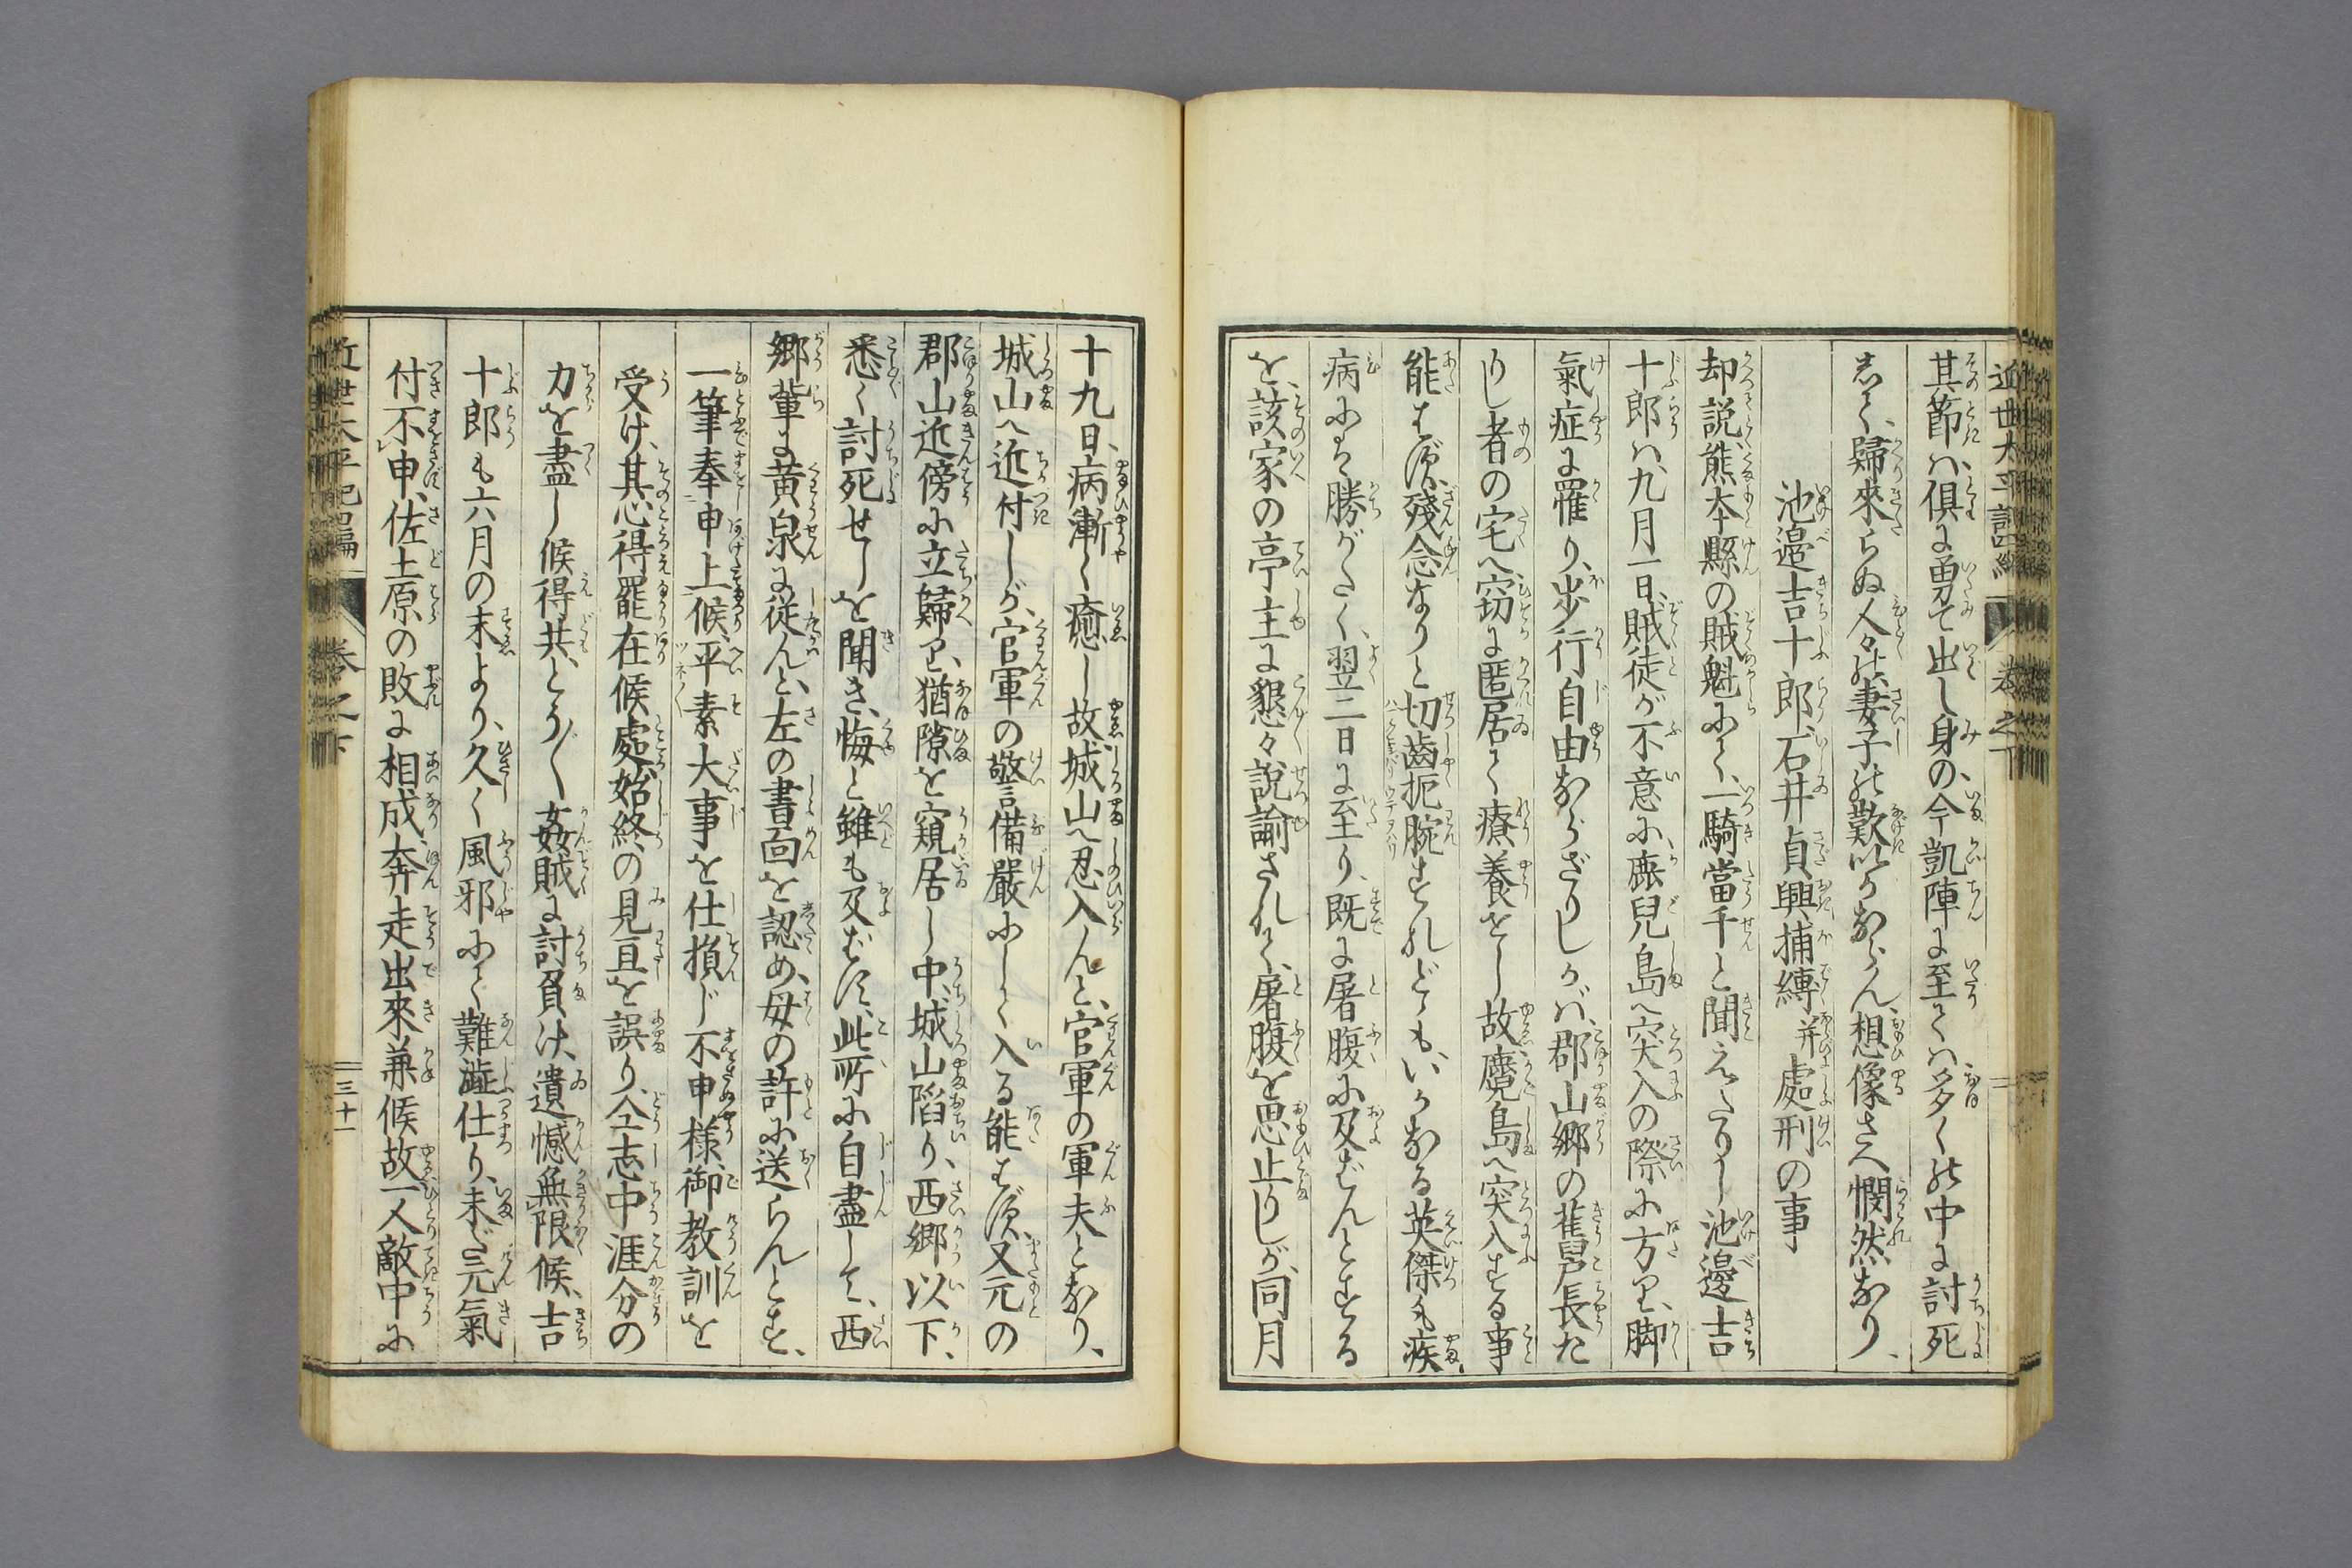 其節ハ、倶に勇て出し身の、今凱陣に至てハ多くの中に討死
志て、歸來らぬ人々の、妻子の歎いかならん、想像さへ憫然なり、
池邉吉十郎、石井貞興捕縛并處刑の事
却説、熊本縣の賊魁にて、一騎當千と聞えたりし池邊吉
十郎ハ、九月一日、賊徒が不意に鹿兒島へ突入の際に方り、脚
氣症に罹り、歩行自由ならざりしかバ、郡山郷の舊戸長た
りし者の宅へ窃に匿居て療養をし故、麑島へ突入する事
能はず、殘念なりと切齒扼腕すれども、いかなる英傑も疾
病にハ勝がたく、翌二日に至り、既に屠腹に及ばんとする
を、該家の亭主に懇々説諭されて、屠腹を思止りしが、同月
十九日、病漸く癒し故城山へ忍入んと、官軍の軍夫となり、
城山へ近付しが、官軍の警備嚴にして入る能はず、又元の
郡山近傍に立歸り、猶隙を窺居し中、城山陷り、西郷以下、
悉く討死せしを聞き、悔と雖も及ばず、此所に自盡して、西
郷輩に黄泉に従んと、左の書面を認め、母の許に送らんとす、
一筆奉申上候、平素大事を仕損じ不申様、御教訓を
受け、其心得罷在候處、始終の見亘を誤り、仝志中涯分の
力を盡し候得共、とう〳〵姦賊に討負け、遺憾無限候、吉
十郎も六月の末より、久く風邪にて難澁仕り、未だ元氣
付不申、佐土原の敗に相成、奔走出來兼候故、一人敵中に
近世太平記二編
巻之下
三十一